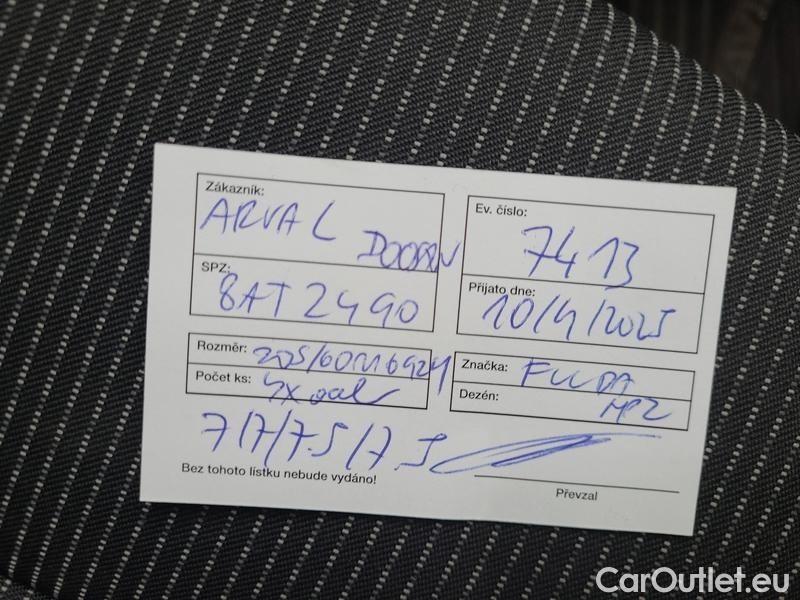 Zákazník:
ARVAL
Ev. číslo:
7413
SPZ:
8AT2490
Přijato dne:
10/4/2025
Rozměr: 205/60R16 92H
Značka: FULDA
Počet ks: 4x
Dezén:
7/7/7.5/7.5
Bez tohoto lístku nebude vydáno!
Převzal
CarOutlet.eu